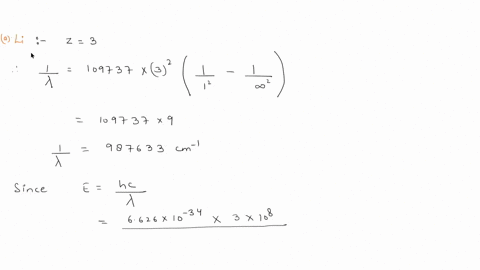 (a) Li :- Z = 3
∴ 1/λ = 109737 × (3)² ( 1/1² - 1/∞² )
= 109737 × 9
1/λ = 987633 cm⁻¹
Since E = hc/λ
= 6.626 × 10⁻³⁴ × 3 × 10⁸